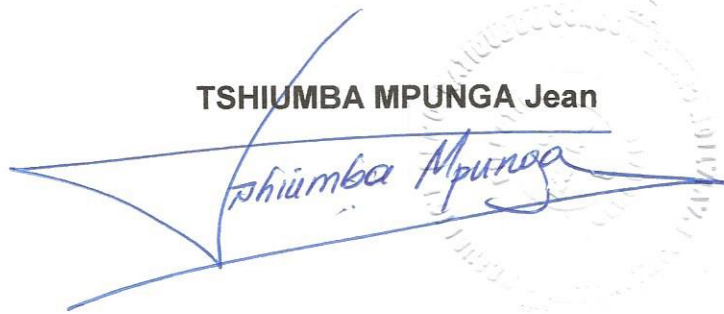 TSHIUMBA MPUNGA Jean
Tshiumba Mpunga